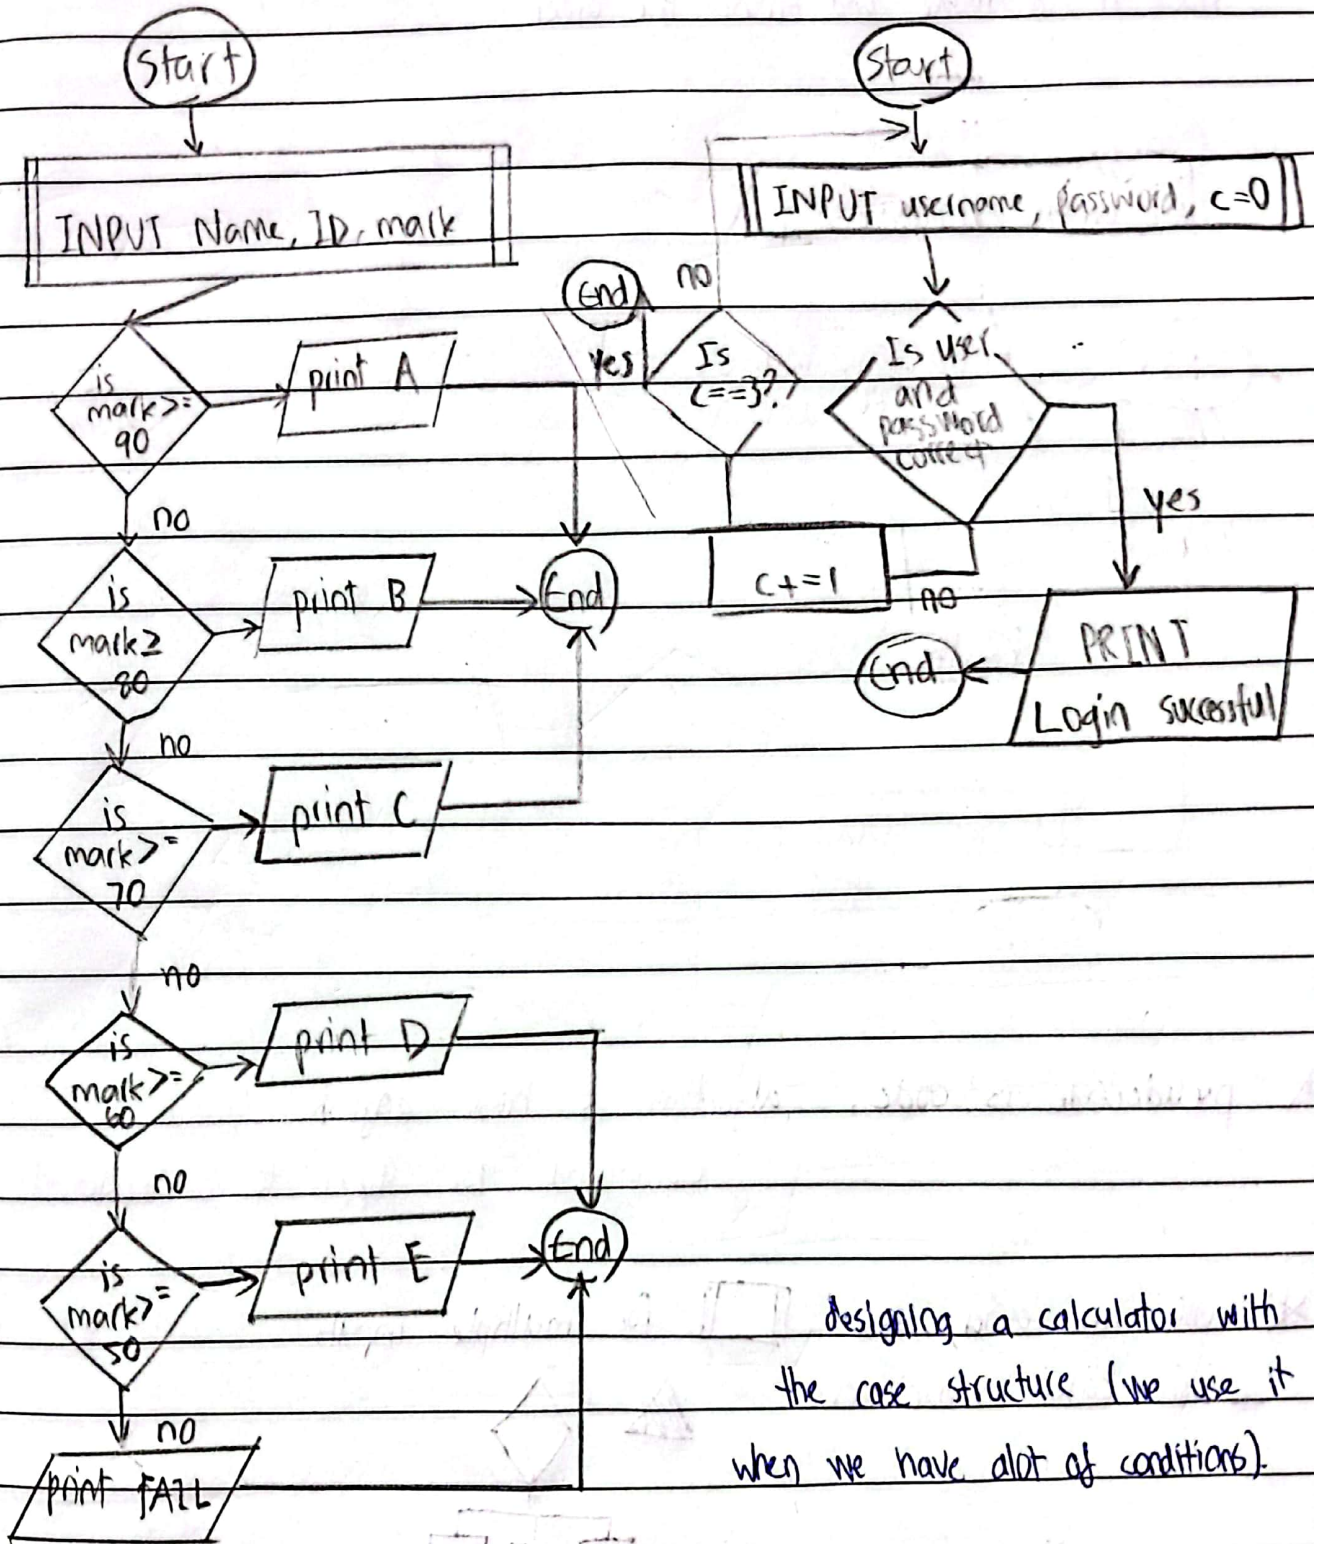 Start
INPUT Name, ID, mark
is
mark>=
90
print A
no
is
mark≥
80
print B
End
no
is
mark>=
70
print C
no
is
mark>=
60
print D
no
is
mark>=
50
print E
End
no
print FAIL
Start
INPUT username, password, c=0
Is user
and
password
correct
yes
PRINT
Login successful
End
no
c+=1
Is
c==3?
no
yes
End
designing a calculator with
the case structure (we use it
when we have alot of conditions).